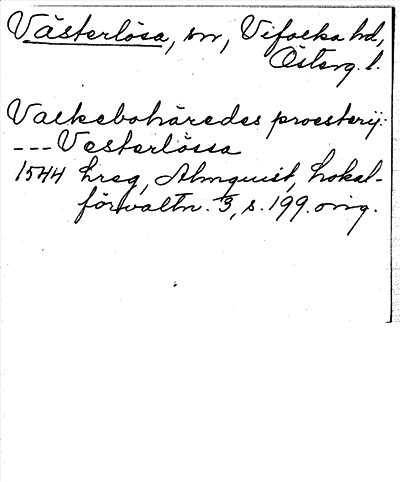 Västerlösa, sn, Vifolka hd,
Österg. l.
Valkebohäredes proesterij:
---Vesterlössa
1544 Lreg, Almquist, Lokal-
förvaltn. 3, s. 199. orig.